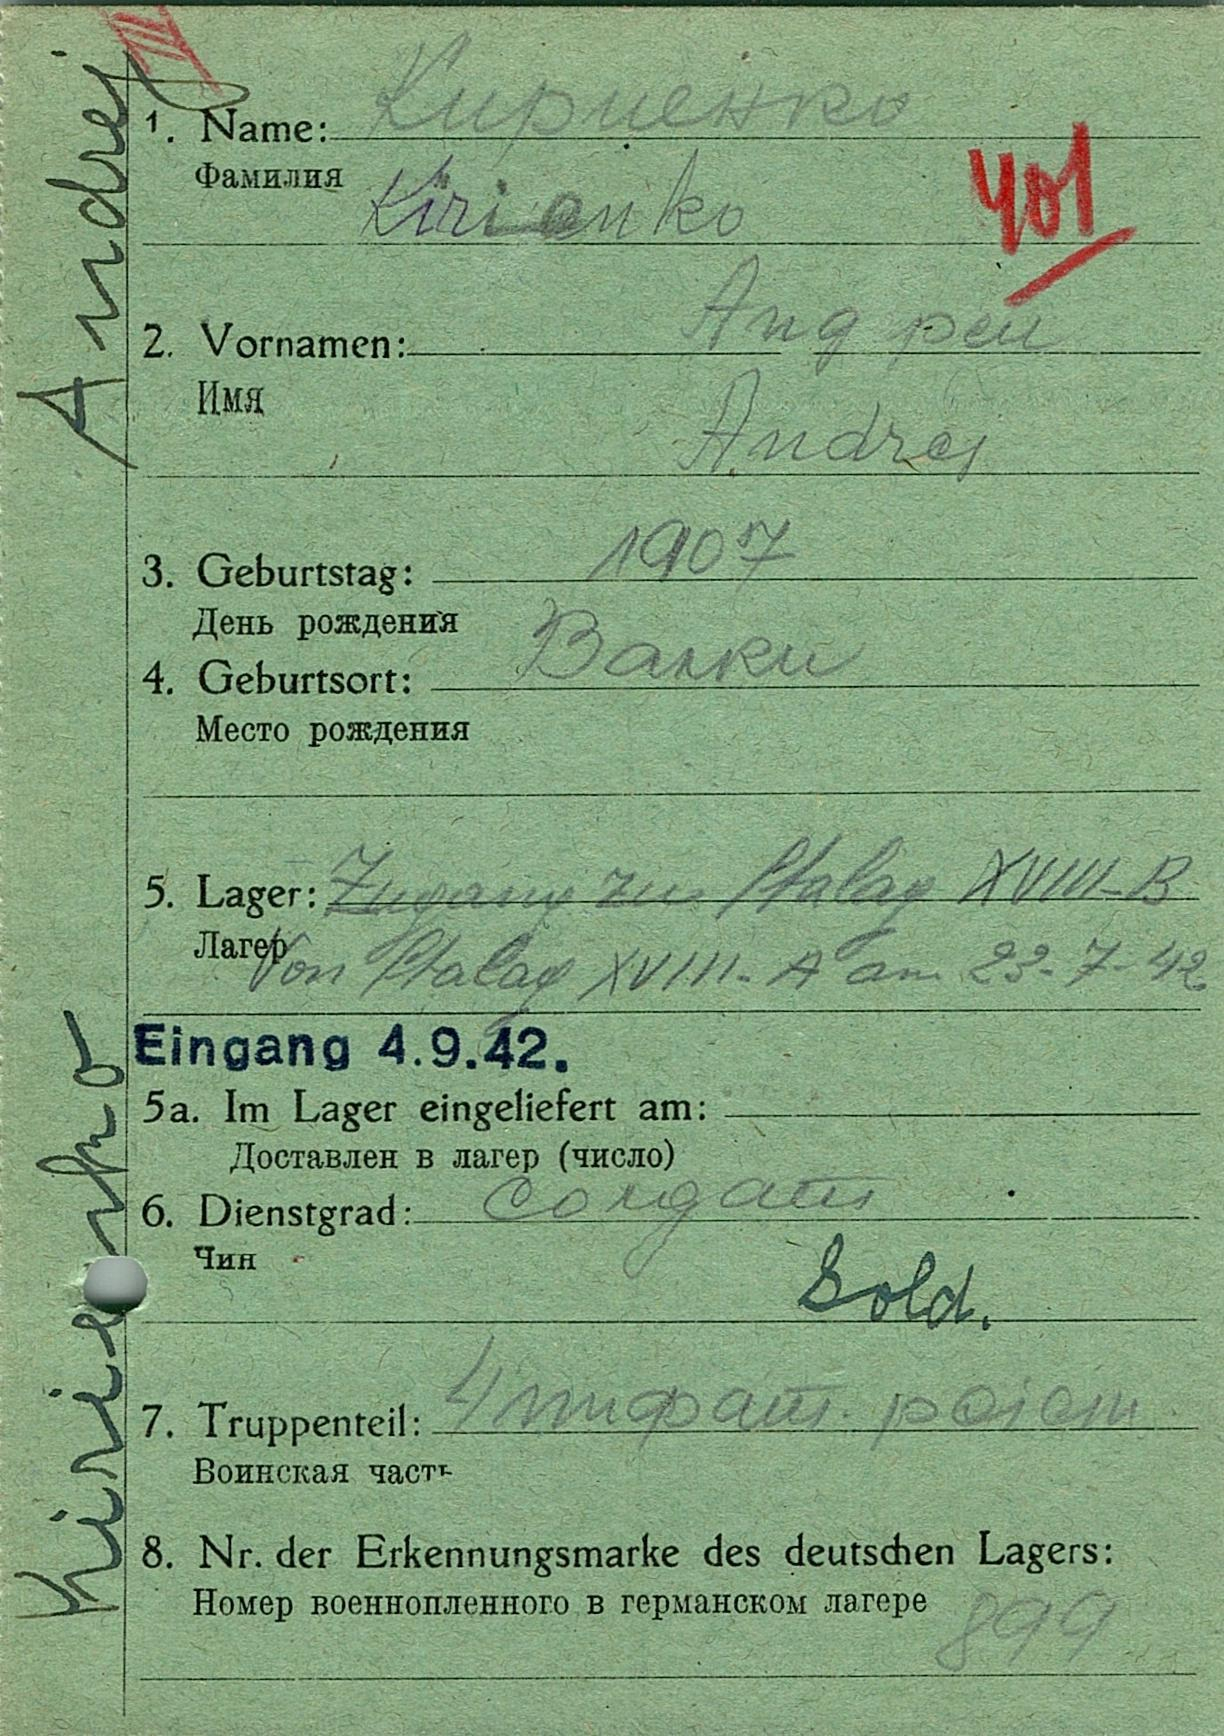 Andrej
Kirienko
III
1. Name: Кириенко
Фамилия
Kirienko
401
2. Vornamen: Андреи
Имя
Andrej
3. Geburtstag: 1907
День рождения
4. Geburtsort: Валки
Место рождения
5. Lager: Zugang zu Stalag XVIII-B
Лагер
Von Stalag XVIII-A am 23-7-42
Eingang 4.9.42.
5a. Im Lager eingeliefert am:
Доставлен в лагер (число)
6. Dienstgrad: солдат
Чин
Sold.
7. Truppenteil: 4
Воинская часть
8. Nr. der Erkennungsmarke des deutschen Lagers:
Номер военнопленного в германском лагере 899